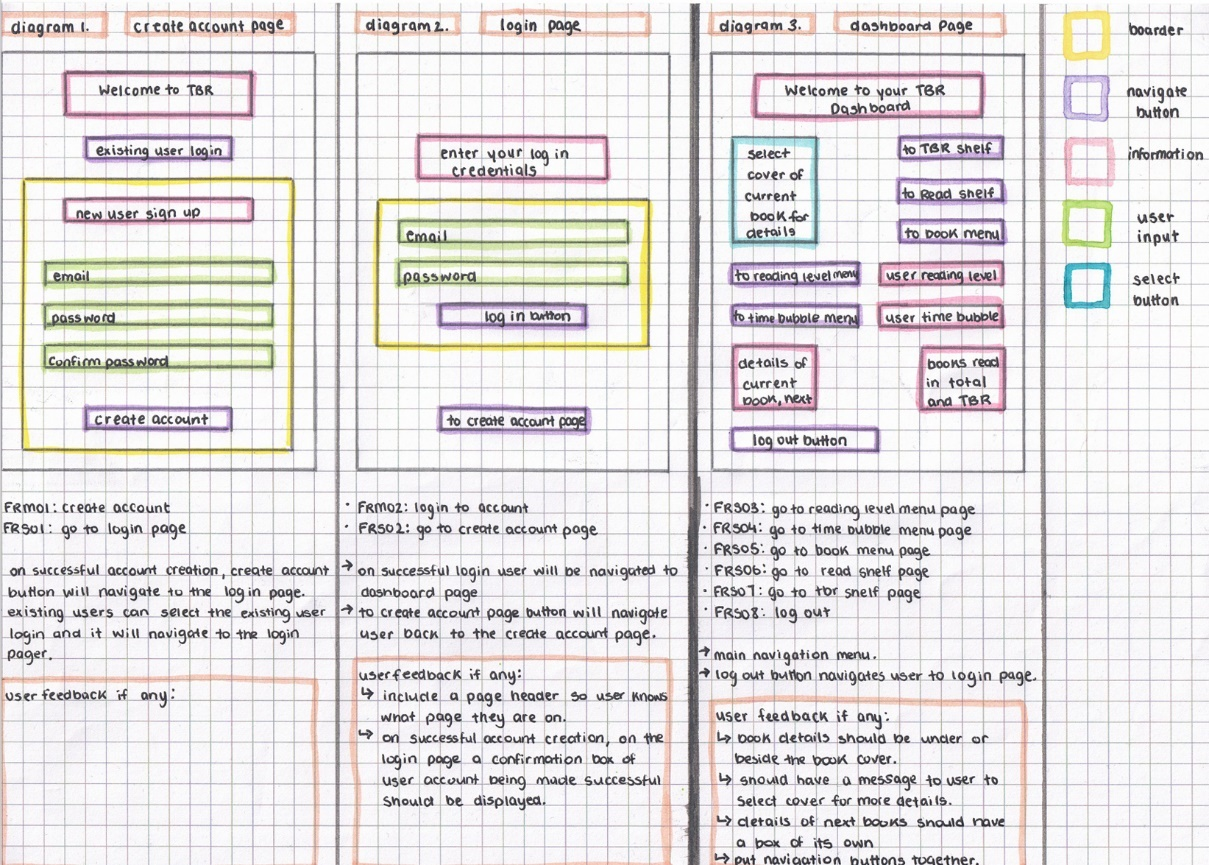 diagram 1.
create account page
Welcome to TBR
existing user login
new user sign up
email
password
Confirm password
create account
FRM01: create account
FRS01: go to login page
on successful account creation, create account
button will navigate to the log in page.
existing users can select the existing user
login and it will navigate to the login
pager.
user feedback if any:
diagram 2.
login page
enter your log in
credentials
email
password
log in button
to create account page
· FRM02: login to account
· FRS02: go to create account page
→ on successful login user will be navigated to
dashboard page
→ to create account page button will navigate
user back to the create account page.
user feedback if any:
↳ include a page header so user knows
what page they are on.
↳ on successful account creation, on the
login page a confirmation box of
user account being made successful
should be displayed.
diagram 3.
dashboard Page
Welcome to your TBR
Dashboard
select
cover of
current
book for
details
to TBR shelf
to Read shelf
to book menu
to reading level menu
user reading level
to time bubble menu
user time bubble
details of
current
book, next
books read
in total
and TBR
log out button
· FRS03: go to reading level menu page
· FRS04: go to time bubble menu page
· FRS05: go to book menu page
· FRS06: go to read shelf page
· FRS07: go to tbr shelf page
· FRS08: log out
→ main navigation menu.
→ log out button navigates user to login page.
user feedback if any:
↳ book details should be under or
beside the book cover.
↳ should have a message to user to
select cover for more details.
↳ details of next books should have
a box of its own
↳ put navigation buttons together.
boarder
navigate
button
information
user
input
select
button